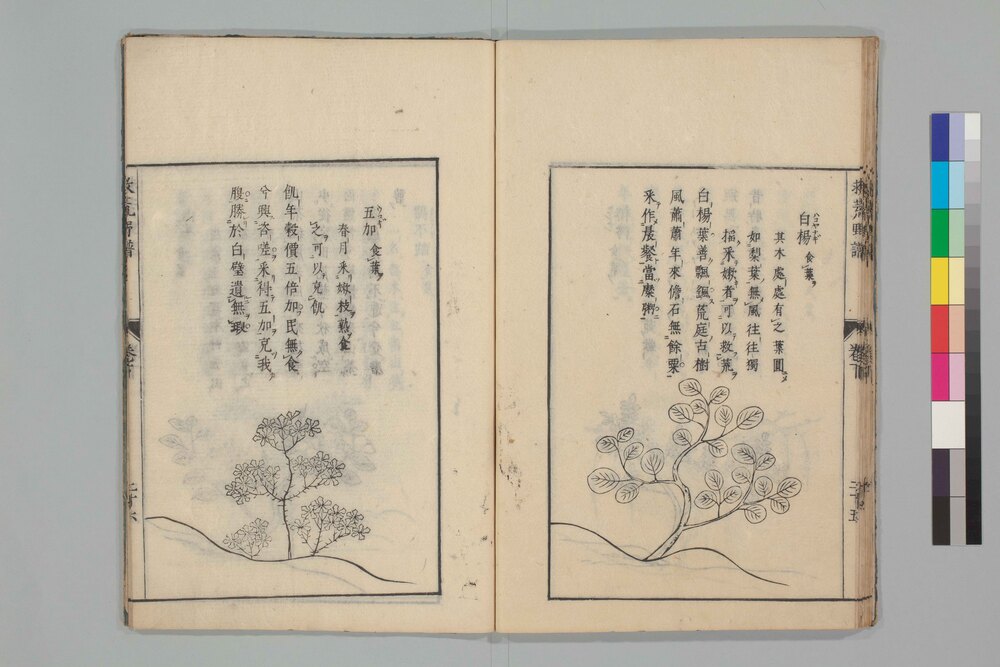 救荒野譜
卷下
白楊 食葉
其木處處有之葉圓
如梨葉無風往往獨
搖采嫩者可以救荒
白楊葉善飄颻荒庭古樹
風蕭蕭年來儋石無餘粟
采作晨餐當糜粥
五加 食葉
春月采嫩枝熟食
之可以充飢
飢年穀價五倍加民無食
兮興咨嗟采得五加充我
腹勝於白璧遺無瑕
救荒野譜
卷下